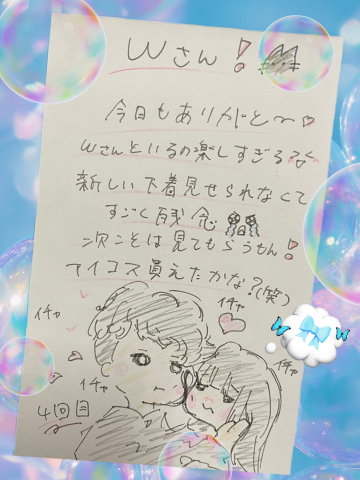 Wさん!
今日もありがと〜♡
Wさんといるの楽しすぎる
新しい下着見せられなくて
すごく残念
次こそは見てもらうもん!
アイコス買えたかな?(笑)
イチャ
イチャ
イチャ
イチャ
4回目